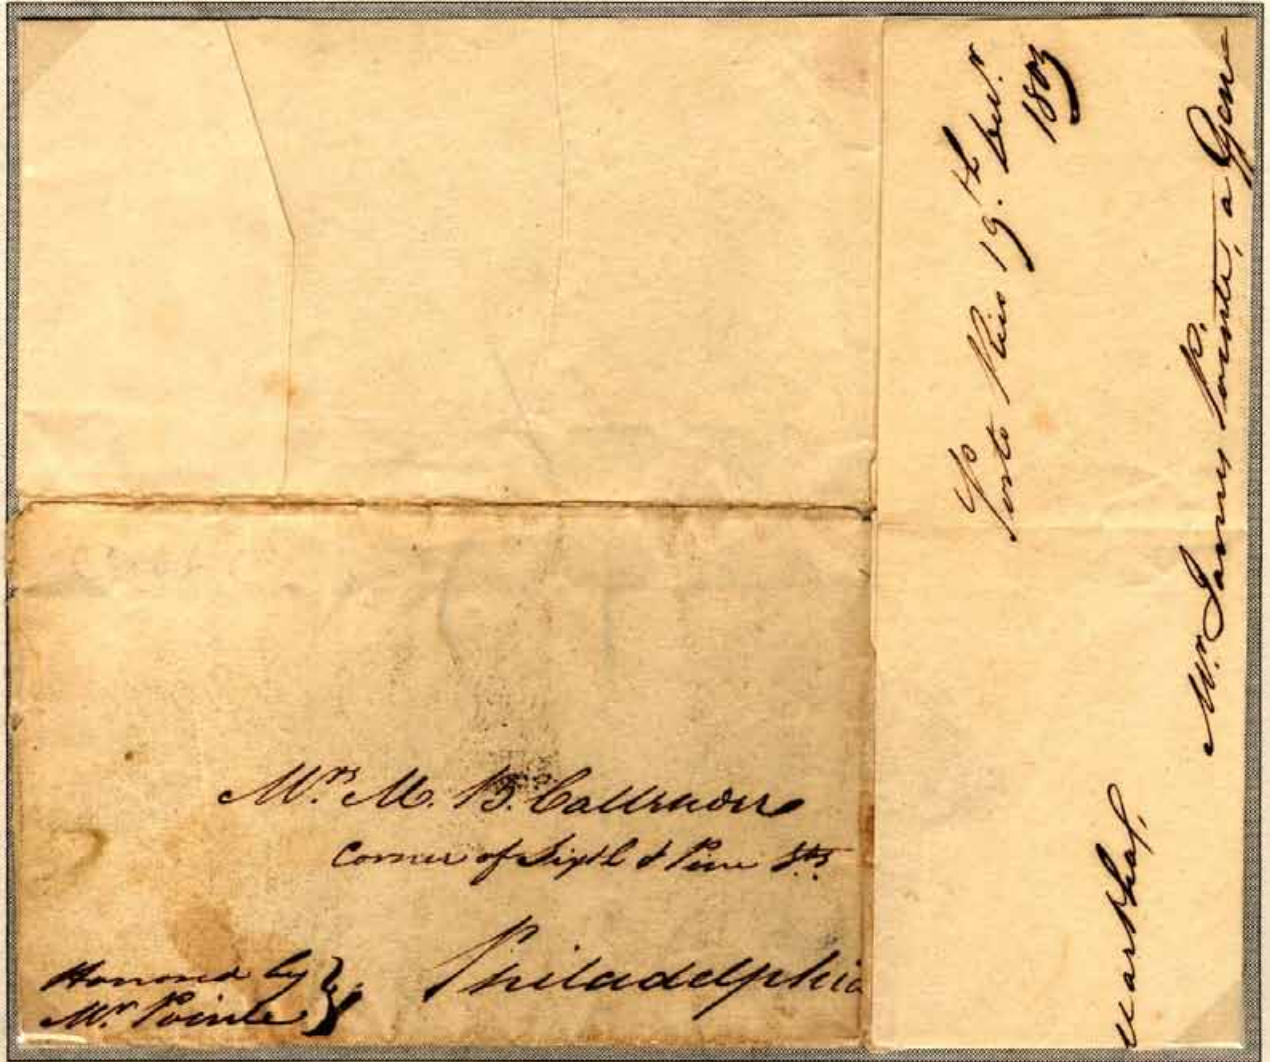 Mrs M. B.
Corner of Sixth & Pine Sts.
Philadelphia
Honored by
Mr Pointe
Porto Rico 19.th
1803
Mr James P. Pointe, a Gen